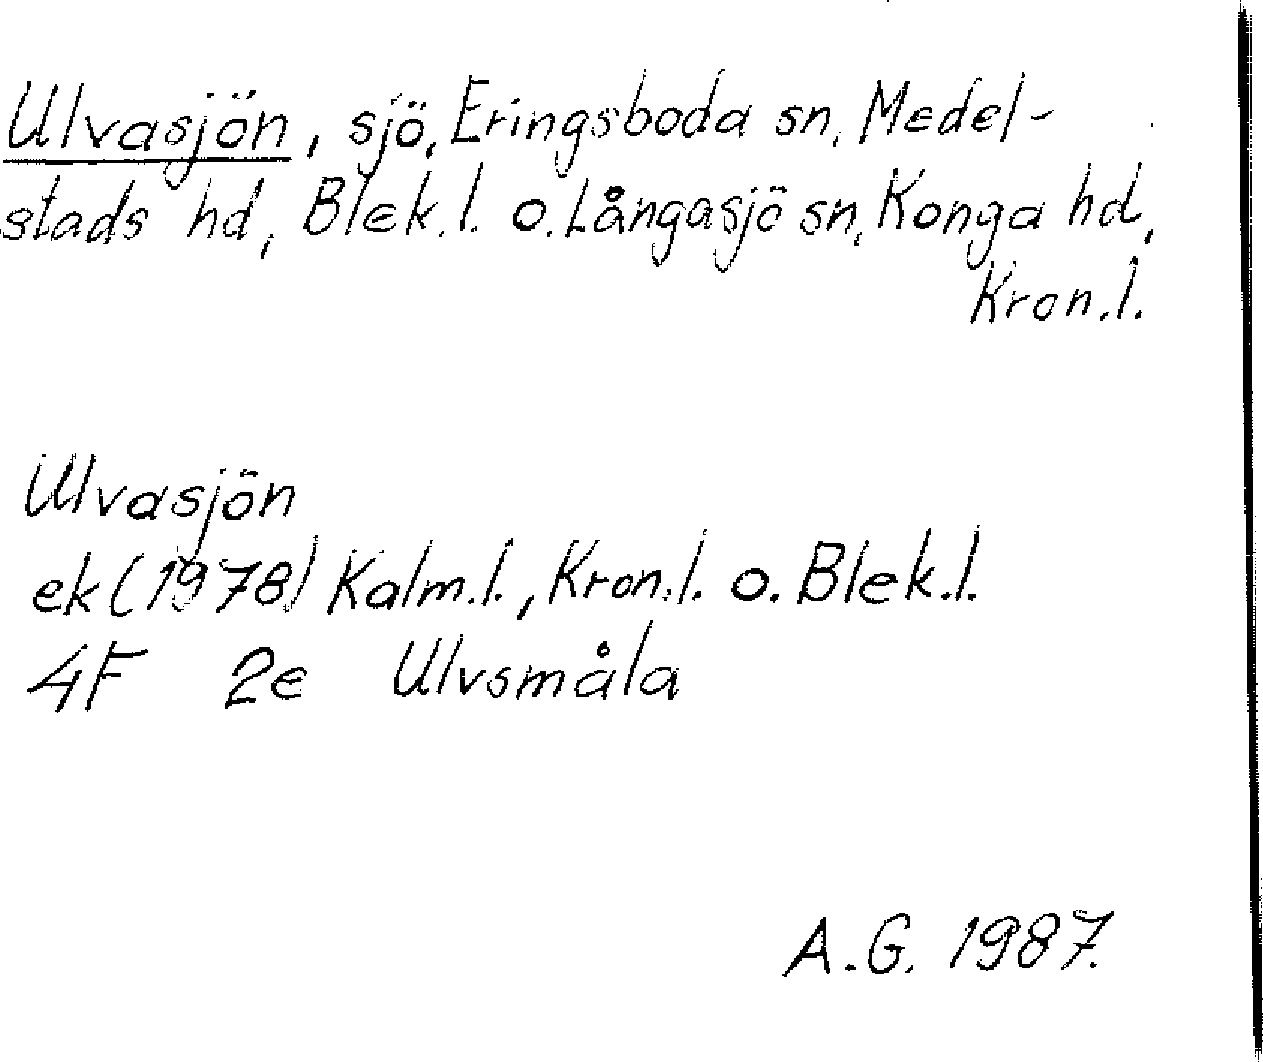 Ulvasjön, sjö, Eringsboda sn, Medel-
stads hd, Blek.l. o. Långasjö sn, Konga hd,
Kron.l.
Ulvasjön
ek (1978) Kalm.l., Kron.l. o. Blek.l.
4F 2e Ulvsmåla
A.G. 1987.